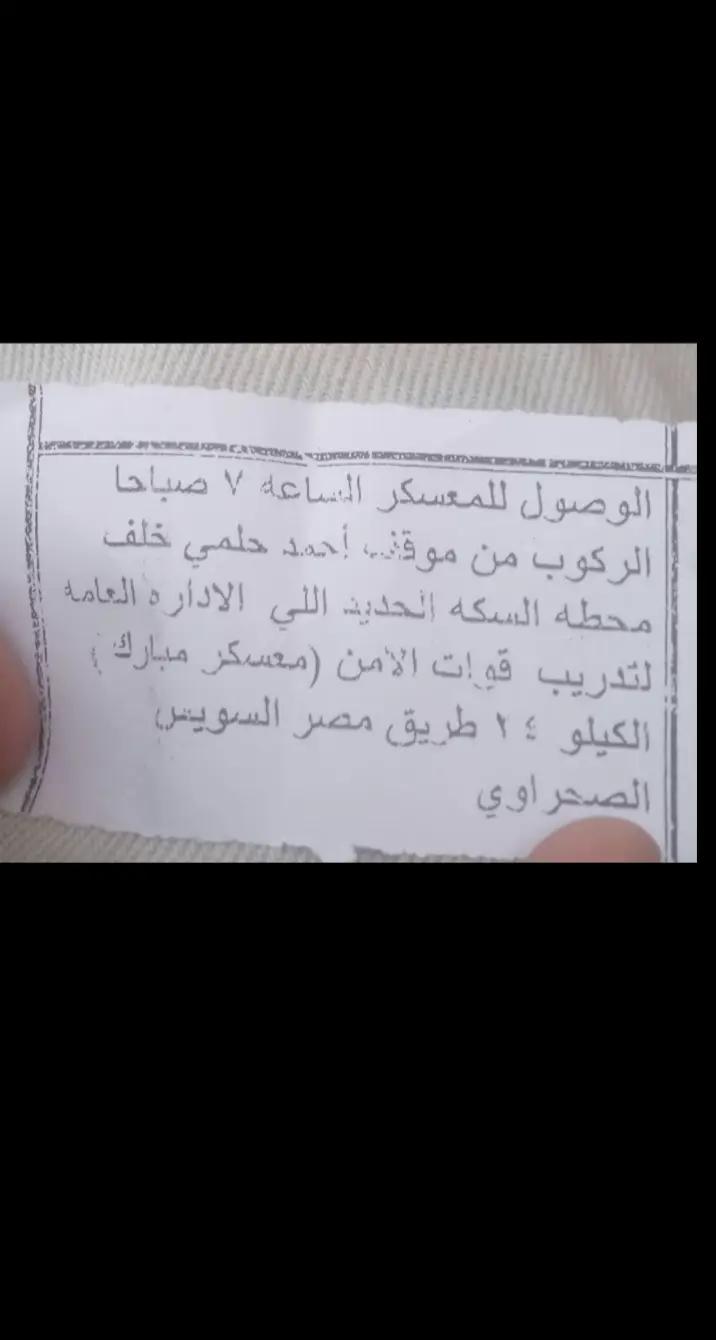 الوصول للمعسكر الساعه ٧ صباحا
الركوب من موقف أحمد حلمي خلف
محطه السكه الحديد اللي الاداره العامه
لتدريب قوات الأمن (معسكر مبارك)
الكيلو ٢٤ طريق مصر السويس
الصحراوي